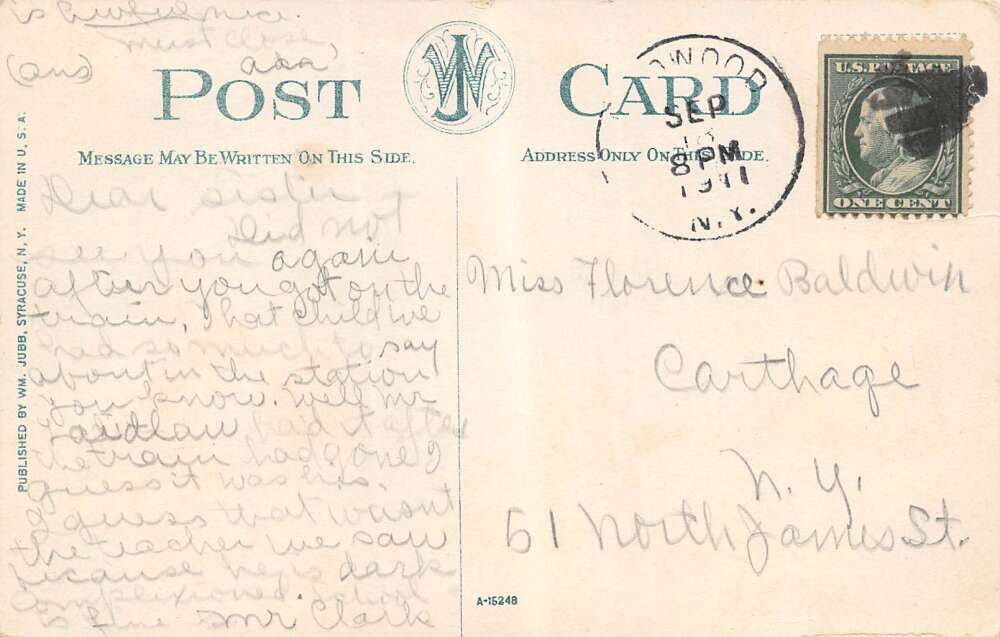 is
must close
(ans)
POST CARD
WJ
MESSAGE MAY BE WRITTEN ON THIS SIDE.
ADDRESS ONLY ON THIS SIDE.
WOOD
SEP
18
8 PM
1911
N.Y.
U.S. POSTAGE
ONE CENT
PUBLISHED BY WM. JUBB, SYRACUSE, N. Y. MADE IN U. S. A.
Dear Sister
Did not
see you again
after you got on the
train, that child we
had so much to say
about in the station
you know. Well Mr
aidlaw had it after
the train had gone I
guess it was his.
I guess that wasnt
the teacher we saw
because he is dark
complexioned. School
is fine Mr Clark
Miss Florence Baldwin
Carthage
N. Y.
51 North James St.
A-15248